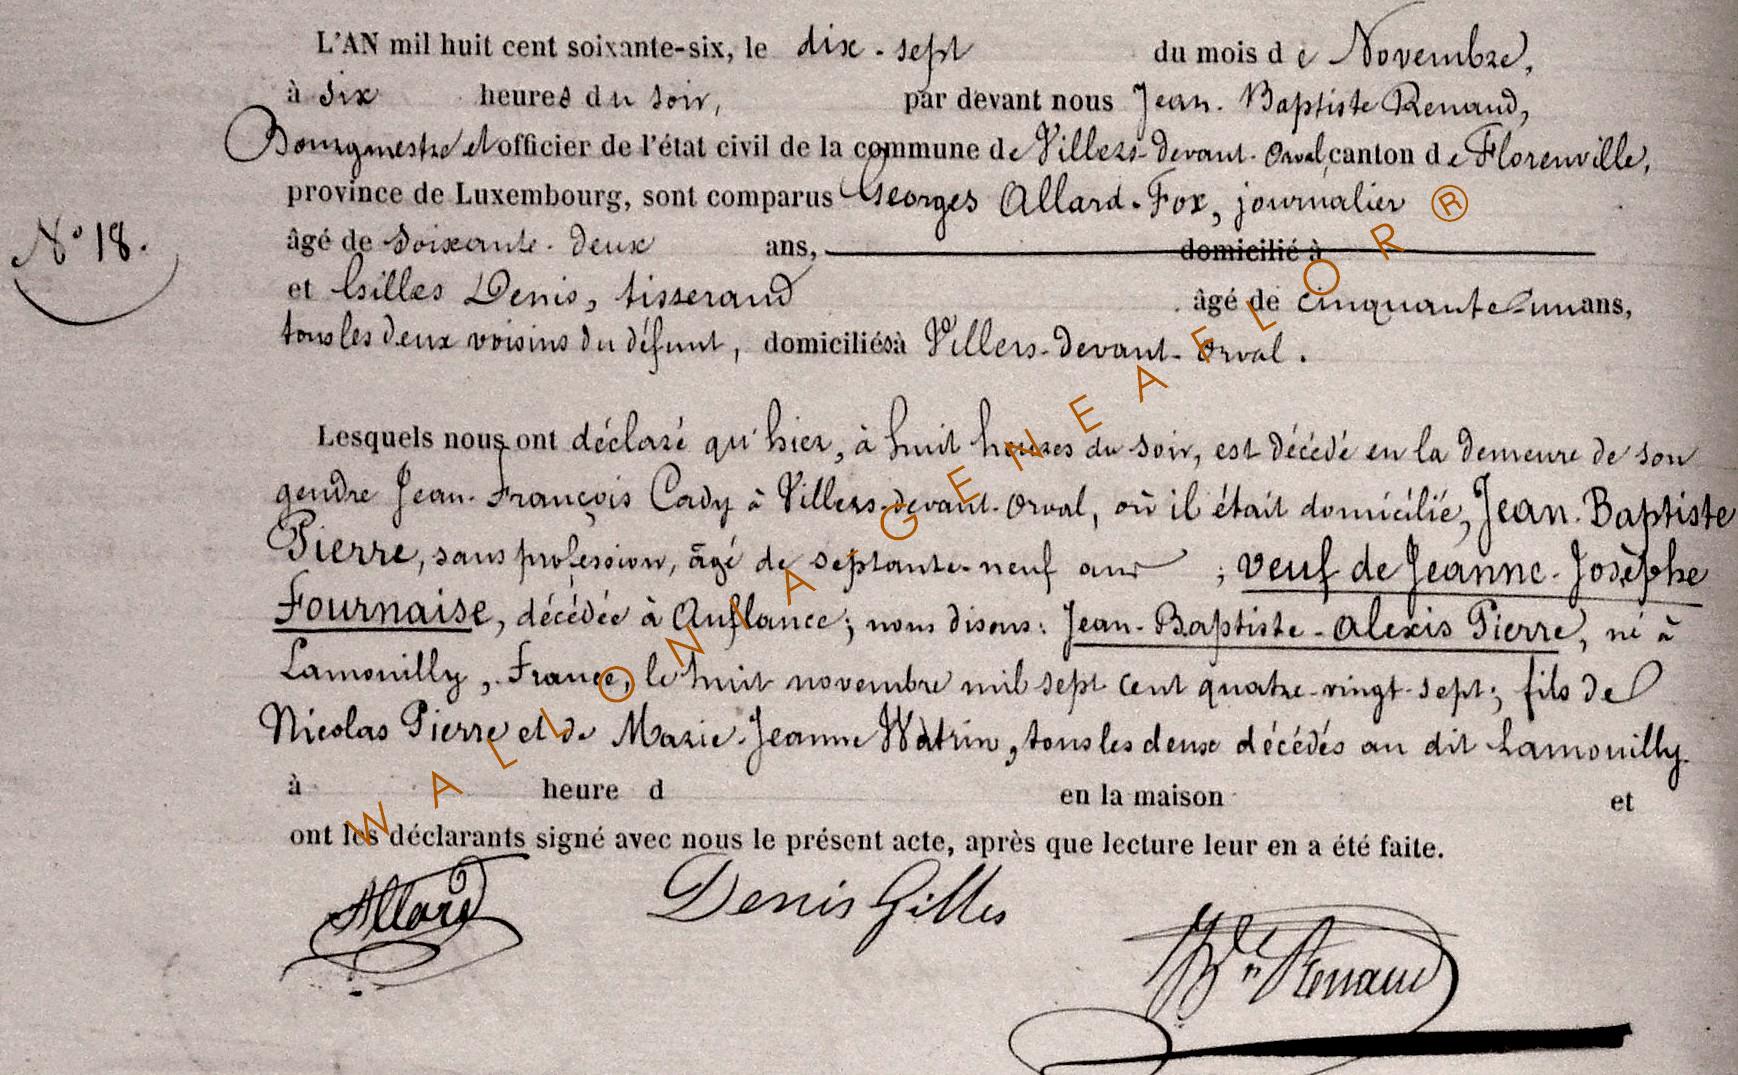 L'AN mil huit cent soixante-six, le dix-sept du mois de Novembre,
à six heures du soir, par devant nous Jean-Baptiste Renaud,
Bourgmestre et officier de l'état civil de la commune de Villers-devant-Orval, canton de Florenville,
province de Luxembourg, sont comparus Georges Allard-Fox, journalier
N° 18.
âgé de soixante-deux ans, domicilié à
et Gilles Denis, tisserand âgé de cinquante-un ans,
tous les deux voisins du défunt, domiciliés à Villers-devant-Orval.
Lesquels nous ont déclaré qu'hier, à huit heures du soir, est décédé en la demeure de son
gendre Jean-François Cady à Villers-devant-Orval, où il était domicilié, Jean-Baptiste
Pierre, sans profession, âgé de septante-neuf ans ; veuf de Jeanne-Josèphe
Fournaise, décédée à Auflance; nous disons: Jean-Baptiste-Alexis Pierre, né à
Lamouilly, France, le huit novembre mil sept cent quatre-vingt-sept; fils de
Nicolas Pierre et de Marie-Jeanne Watrin, tous les deux décédés au dit Lamouilly.
à heure d en la maison et
ont les déclarants signé avec nous le présent acte, après que lecture leur en a été faite.
Allard Denis Gilles Bte Renaud
WALLONIA-GENEAFLOR®